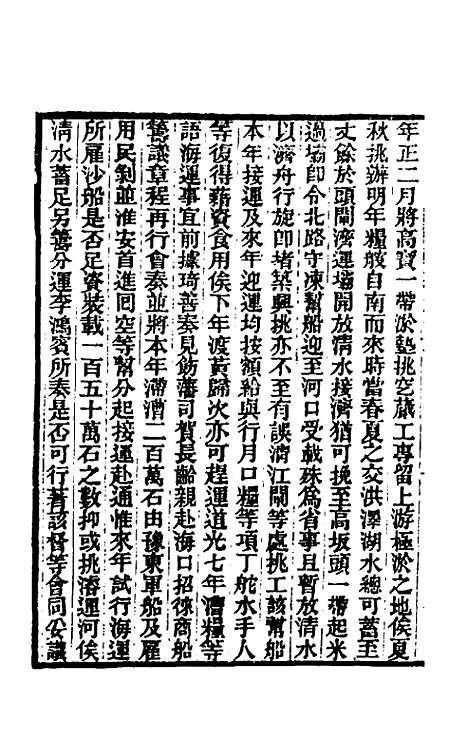 年正二月將高寶一帶淤墊挑完蕆工專留上游極淤之地俟夏
秋挑辦明年糧艘自南而來時當春夏之交洪澤湖水總可蓄至
丈餘於頭閘濟運壩開放清水接濟猶可挽至高坂頭一帶起米
過壩卽令北路守凍幫船迎至河口受載殊爲省事且暫放清水
以濟舟行旋卽堵築興挑亦不至有誤濟江閘等處挑工該幫船
本年接運及來年迎運均按額給與行月口糧等項丁舵水手人
等復得藉資食用俟下年渡黃歸次亦可趕運道光七年漕糧等
語海運事宜前據琦善奏見飭藩司賀長齡親赴海口招徠商船
籌議章程再行會奏並將本年滯漕二百萬石由豫東軍船及雇
用民剝並淮安首進回空等幫分起接運赴通惟來年試行海運
所雇沙船是否足資裝載一百五十萬石之數抑或挑濬運河俟
清水蓄足另籌分運李鴻賓所奏是否可行著該督等會同妥議